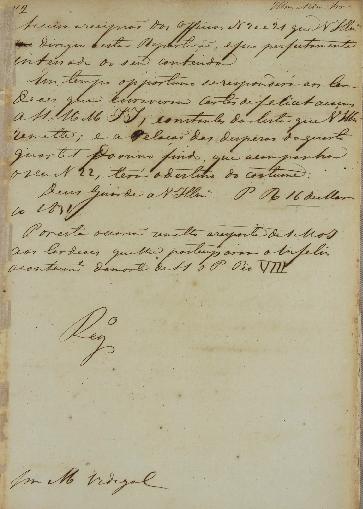 12
Accuso a recepção dos Officios Nº 20 e 21 que V. Illmª
dirigio a esta Repartição, e fico perfeitamente
inteirado os seu contendo.
Em tempo opportuno se responderá aos Car-
deaes que escreverão Cartas de felicitações
a S.S. M.M. I.I., constantes da lista que V. Illmª
remette; e a relação das despezas do quarto
quartel do anno findo, que acompanhou
o seu Nº 22, terá o destino do costume.
Deus Guarde a V. Illmª P. R. 16 de Mar-
ço 1831
Por esta occasião remetto a resposta de S. M. o I.
aos Cardeaes que lhe participarão o infeliz
acontecimº da morte de S. S. o P. Pio VIII
Regº
Snr M. Vidigal